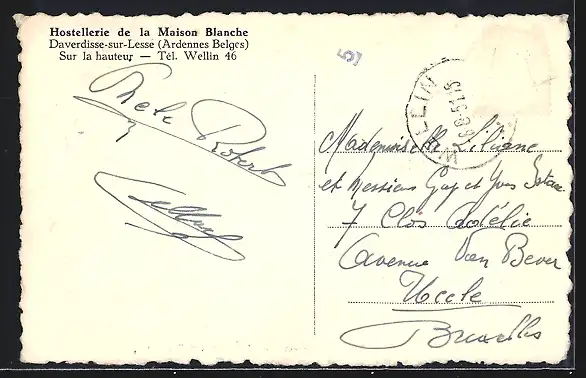 Hostellerie de la Maison Blanche
Daverdisse-sur-Lesse (Ardennes Belges)
Sur la hauteur — Tél. Wellin 46
51
WELLIN
Robert
Mademoiselle Liliane
et Messieurs Guy et Yves
7 Clos Adélie
Avenue Van Bever
Uccle
Bruxelles